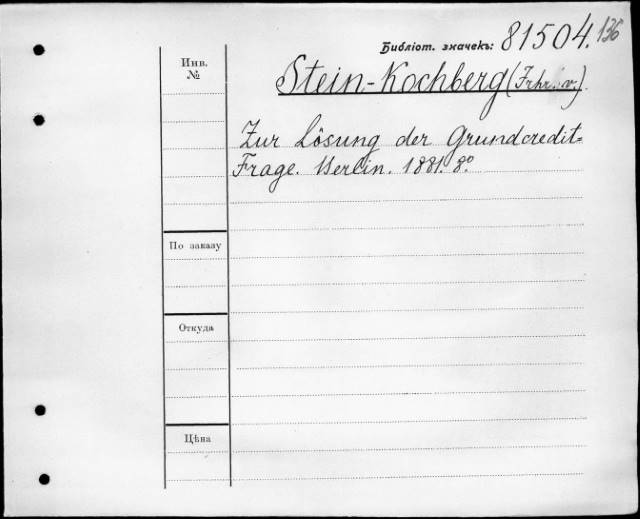 Библіот. значекъ: 81504. 136
Инв.
№
Stein-Kochberg (Frhr. v.).
Zur Lösung der Grundcredit-
Frage. Berlin. 1881. 8º.
По заказу
Откуда
Цѣна